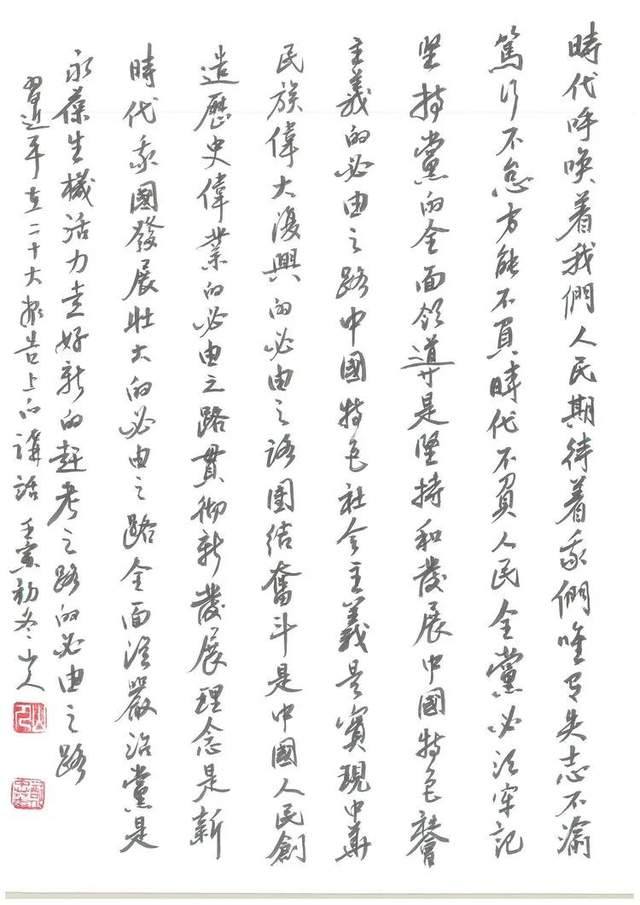 時代呼喚着我們人民期待着我們唯有失志不渝
篤行不怠方能不負時代不負人民全黨必須牢記
坚持黨的全面領導是堅持和發展中國特色社會
主義的必由之路中國特色社会主義是實現中華
民族偉大復興的必由之路團结奮斗是中國人民創
造歷史偉業的必由之路貫彻新發展理念是新
時代我國發展壯大的必由之路全面從嚴治黨是
永葆生機活力走好新的赶考之路的必由之路
習近平在二十大報告上的講話 壬寅初冬山人